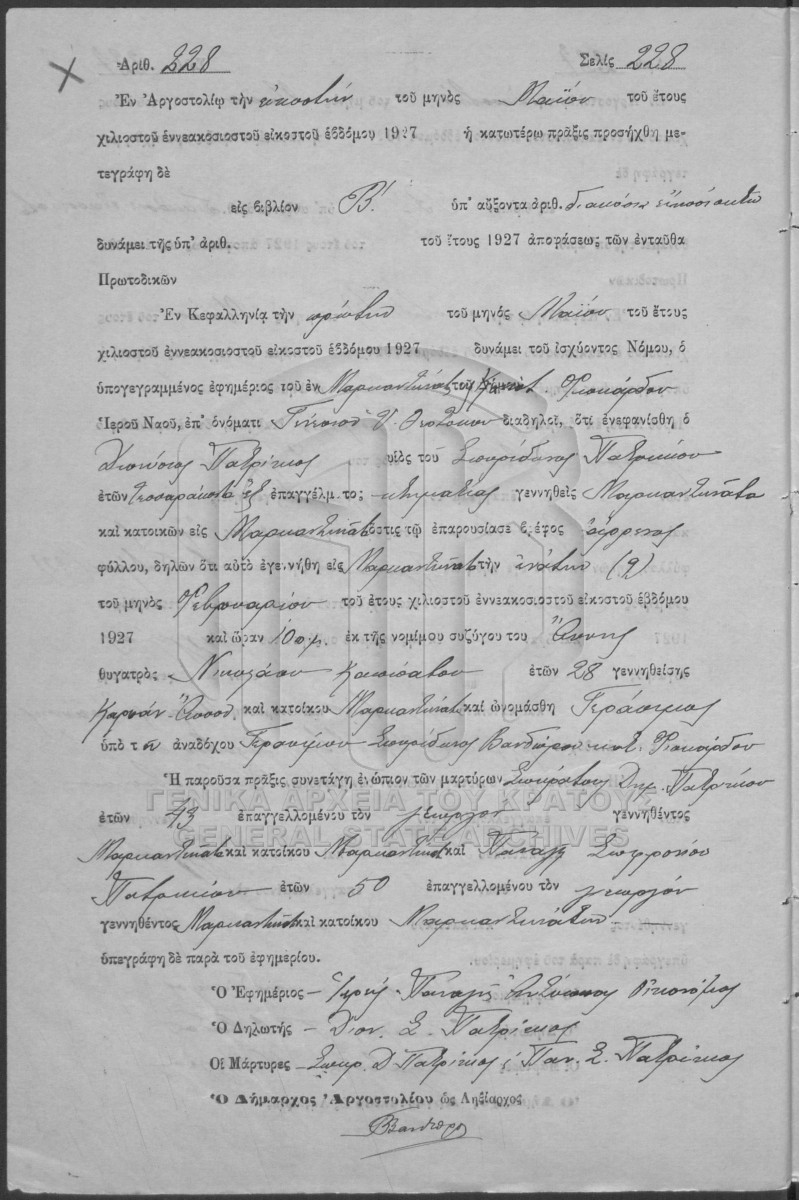 Ἀριθ. 228 Σελὶς 228
Ἐν Ἀργοστολίῳ τὴν εἰκοστὴν τοῦ μηνὸς Μαΐου τοῦ ἔτους
χιλιοστοῦ ἐννεακοσιοστοῦ εἰκοστοῦ ἑβδόμου 1927 ἡ κατωτέρω πρᾶξις προσήχθη με-
τεγράφη δὲ
εἰς βιβλίον Β! ὑπ' αὔξοντα ἀριθ. διακόσια εἴκοσι ὀκτὼ
δυνάμει τῆς ὑπ' ἀριθ. τοῦ ἔτους 1927 ἀποφάσεως τῶν ἐνταῦθα
Πρωτοδικῶν
Ἐν Κεφαλληνίᾳ τὴν πρώτην τοῦ μηνὸς Μαΐου τοῦ ἔτους
χιλιοστοῦ ἐννεακοσιοστοῦ εἰκοστοῦ ἑβδόμου 1927 δυνάμει τοῦ ἰσχύοντος Νόμου, ὁ
ὑπογεγραμμένος ἐφημέριος τοῦ ἐν Μαρκαντωνάτα Φισκάρδου
Ἱεροῦ Ναοῦ, ἐπ' ὀνόματι Θεοτόκου διαδηλοῖ, ὅτι ἐνεφανίσθη ὁ
Διονύσιος Πατρίκιος υἱὸς τοῦ Σπυρίδωνος Πατρικίου
ἐτῶν τεσσαράκοντα ἓξ ἐπαγγέλματος κτηματίας γεννηθεὶς Μαρκαντωνάτα
καὶ κατοικῶν εἰς Μαρκαντωνάτα ὅστις τῷ ἐπαρουσίασε βρέφος ἄρρενος
φύλλου, δηλῶν ὅτι αὐτὸ ἐγεννήθη εἰς Μαρκαντωνάτα τὴν ἐνάτην (9)
τοῦ μηνὸς Φεβρουαρίου τοῦ ἔτους χιλιοστοῦ ἐννεακοσιοστοῦ εἰκοστοῦ ἑβδόμου
1927 καὶ ὥραν 10 π.μ. ἐκ τῆς νομίμου συζύγου του Ἄννης
θυγατρὸς Νικολάου ἐτῶν 28 γεννηθείσης
καὶ κατοίκου Μαρκαντωνάτα καὶ ὠνομάσθη Γεράσιμος
ὑπὸ τοῦ ἀναδόχου Γερασίμου Σπυρίδωνος Βανδώρου κοιν. Φισκάρδου
Ἡ παροῦσα πρᾶξις συνετάγη ἐνώπιον τῶν μαρτύρων Σωκράτους Δημ. Πατρικίου
ἐτῶν 43 ἐπαγγελλομένου τὸν γεωργὸν γεννηθέντος
Μαρκαντωνάτα καὶ κατοίκου Μαρκαντωνάτα καὶ Παναγῆ Σωφρονίου
Πατρικίου ἐτῶν 50 ἐπαγγελλομένου τὸν γεωργὸν
γεννηθέντος Μαρκαντωνάτα καὶ κατοίκου Μαρκαντωνάτων
ὑπεγράφη δὲ παρὰ τοῦ ἐφημερίου.
Ὁ Ἐφημέριος – Ἱερεὺς Παναγῆς Ἀντώνιος Οἰκονόμος
Ὁ Δηλωτὴς – Διον. Σ. Πατρίκιος
Οἱ Μάρτυρες – Σωκρ. Δ Πατρίκιος, Παν. Σ. Πατρίκιος
Ὁ Δήμαρχος Ἀργοστολίου ὡς Ληξίαρχος
ΓΕΝΙΚΑ ΑΡΧΕΙΑ ΤΟΥ ΚΡΑΤΟΥΣ
GENERAL STATE ARCHIVES